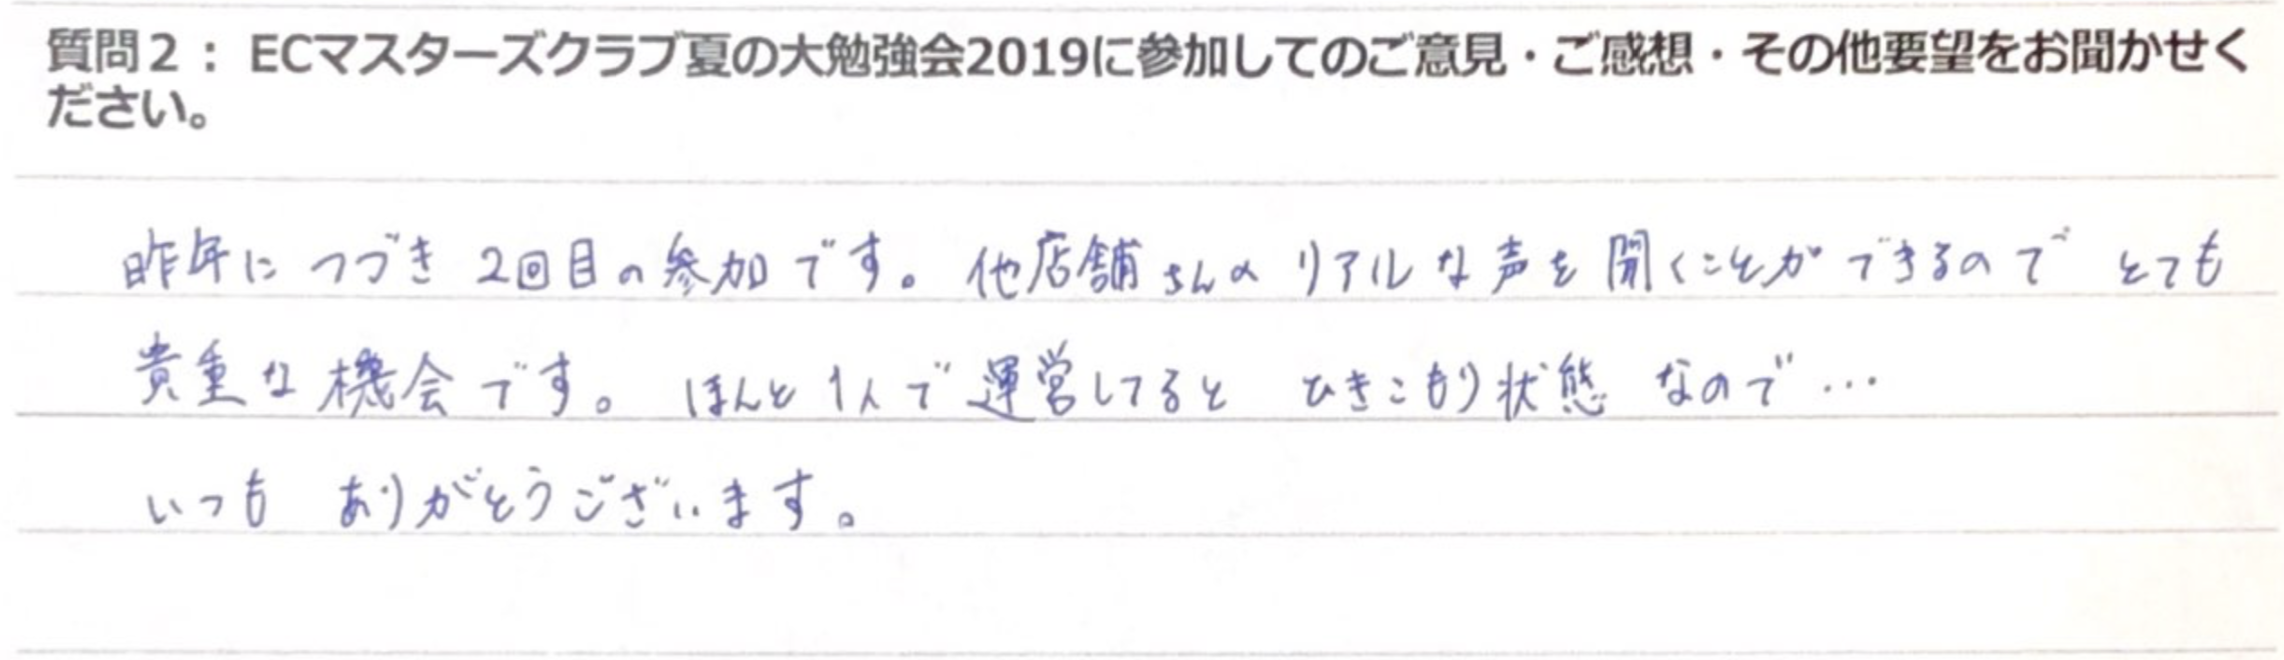 質問２：ECマスターズクラブ夏の大勉強会2019に参加してのご意見・ご感想・その他要望をお聞かせく
ださい。
昨年につづき 2回目の参加です。他店舗さんのリアルな声を聞くことができるので とても
貴重な機会です。ほんと1人で運営してると ひきこもり状態 なので…
いつも ありがとうございます。